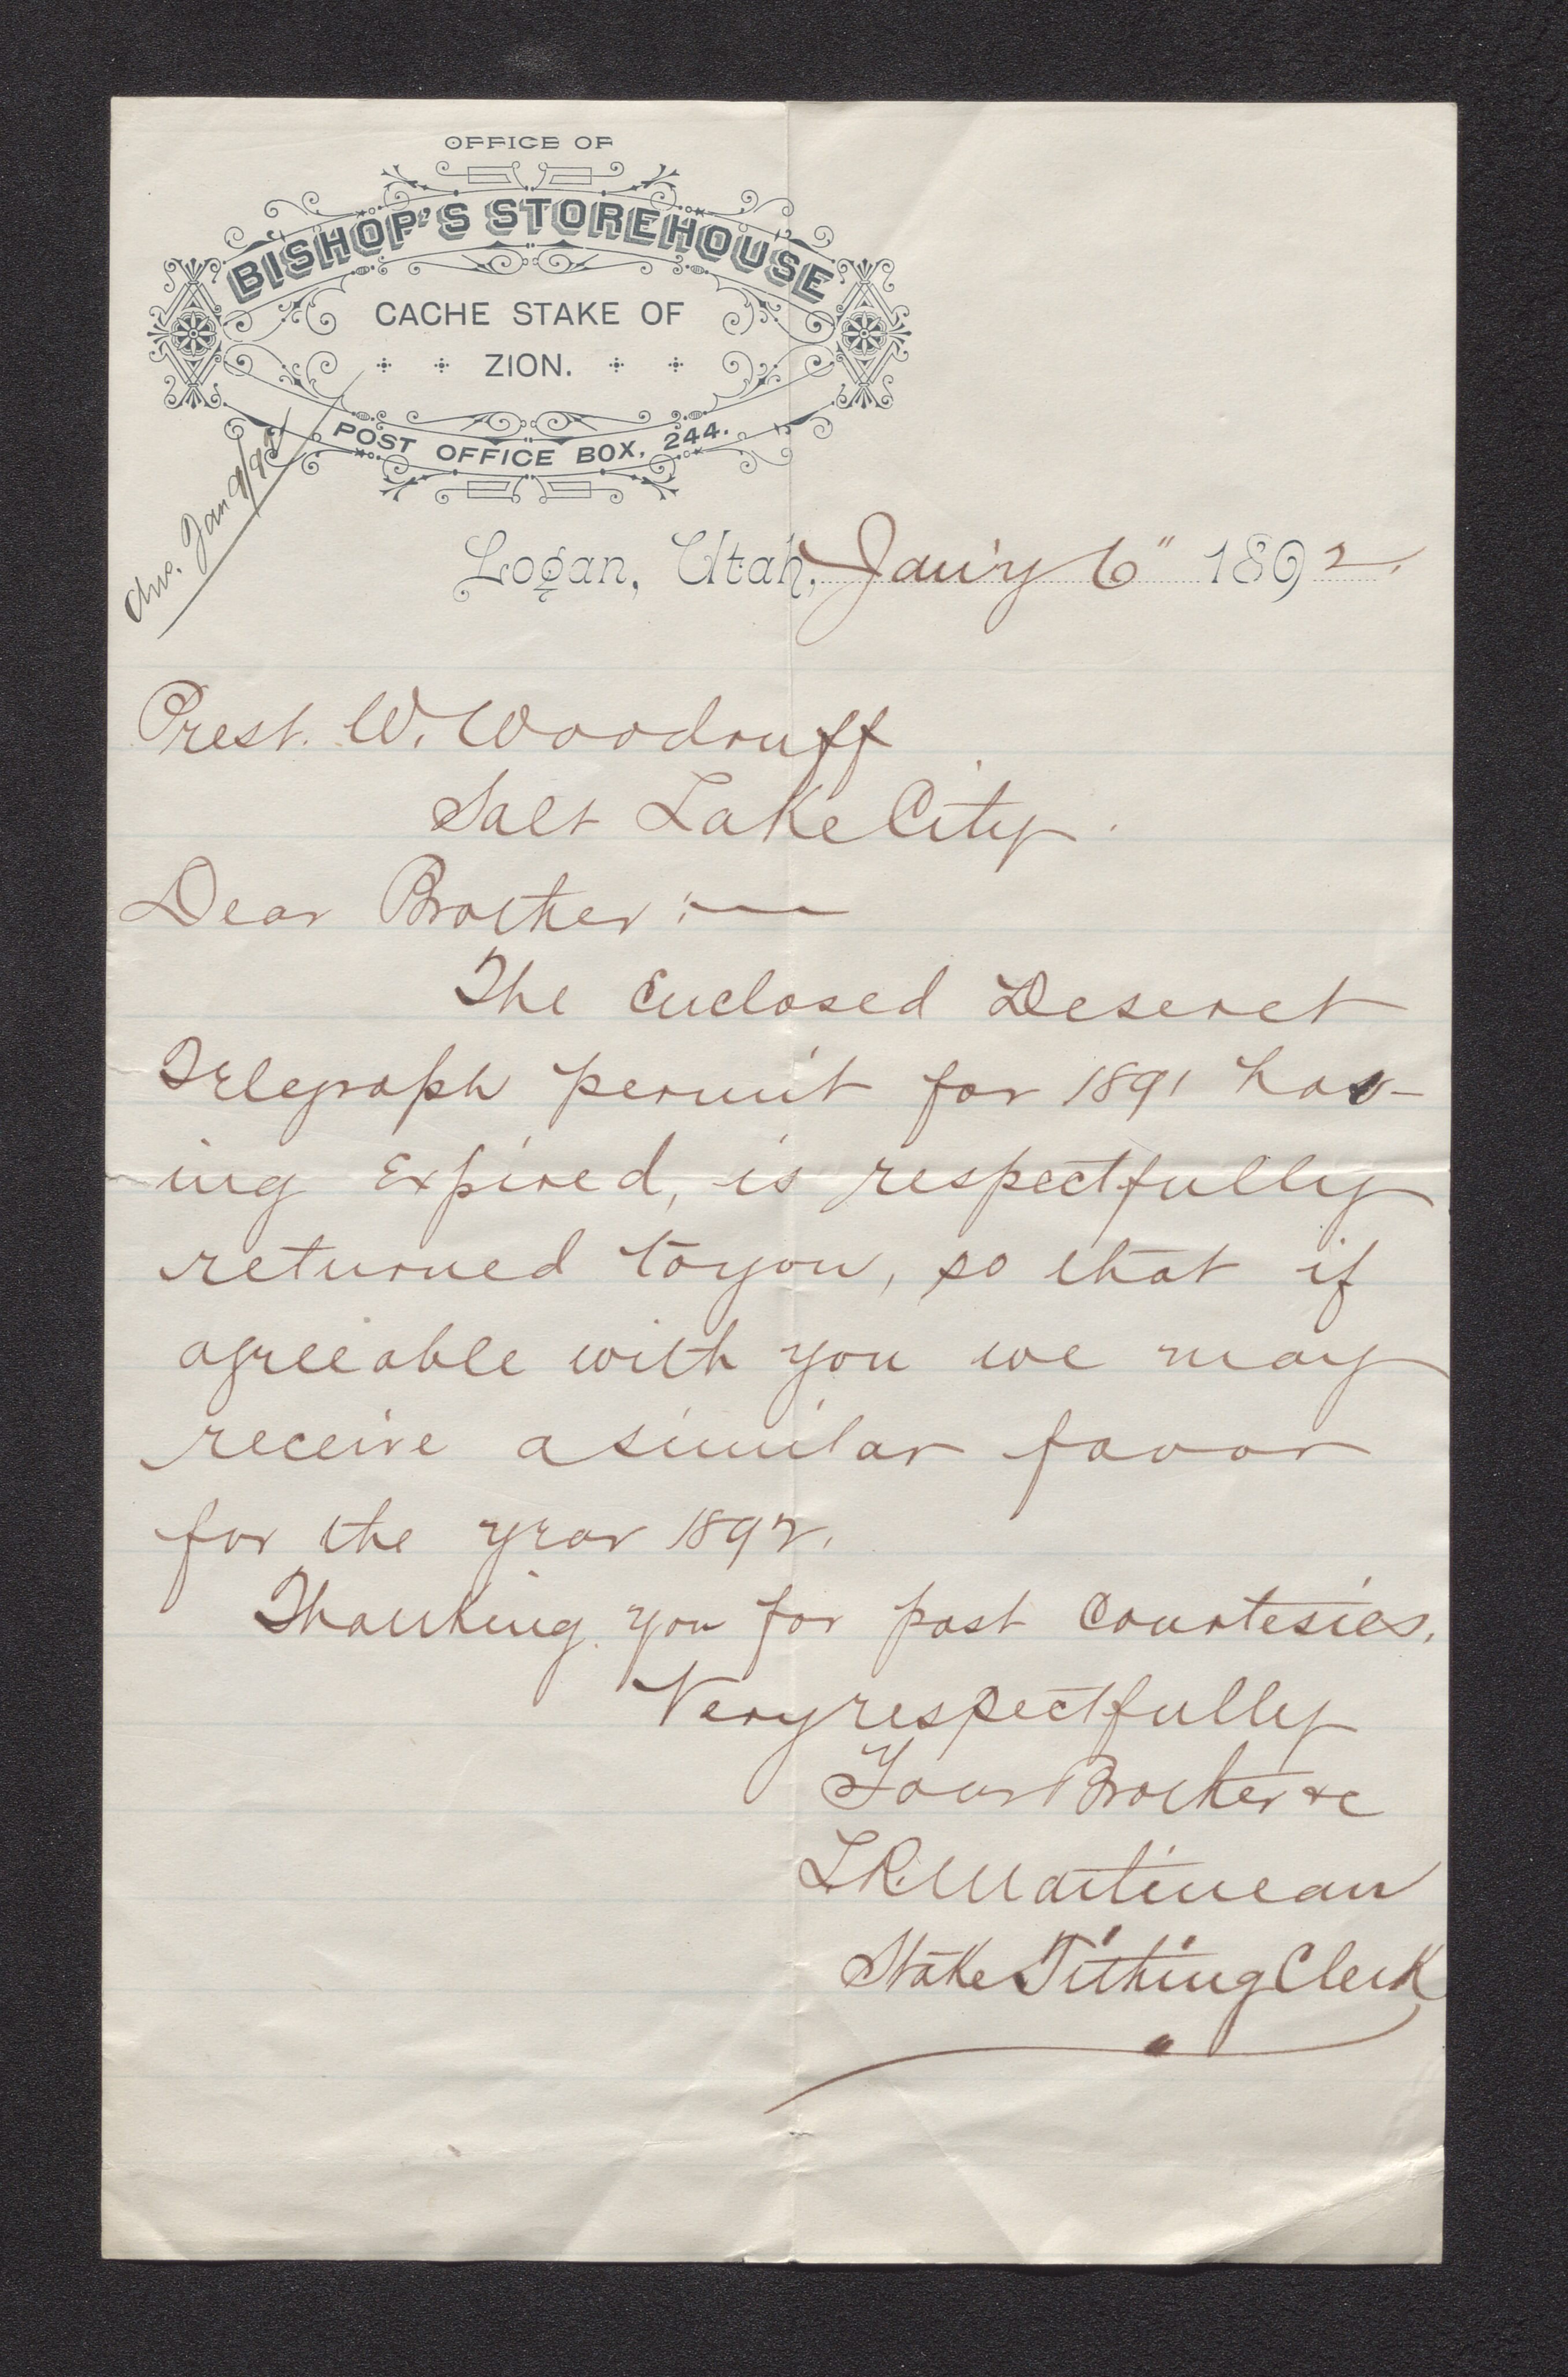 OFFICE OF
BISHOP'S STOREHOUSE
CACHE STAKE OF
ZION.
POST OFFICE BOX, 244.
Ans. Jan 9/92
Logan, Utah, Jan'y 6" 1892.
Prest. W. Woodruff
Salt Lake City.
Dear Brother :—
The Enclosed Deseret
Telegraph permit for 1891 hav-
ing Expired, is respectfully
returned to you, so that if
agreeable with you we may
receive a similar favor
for the year 1892.
Thanking you for past Courtesies.
Very respectfully
Your Brother &c
L R. Martineau
Stake Tithing Clerk